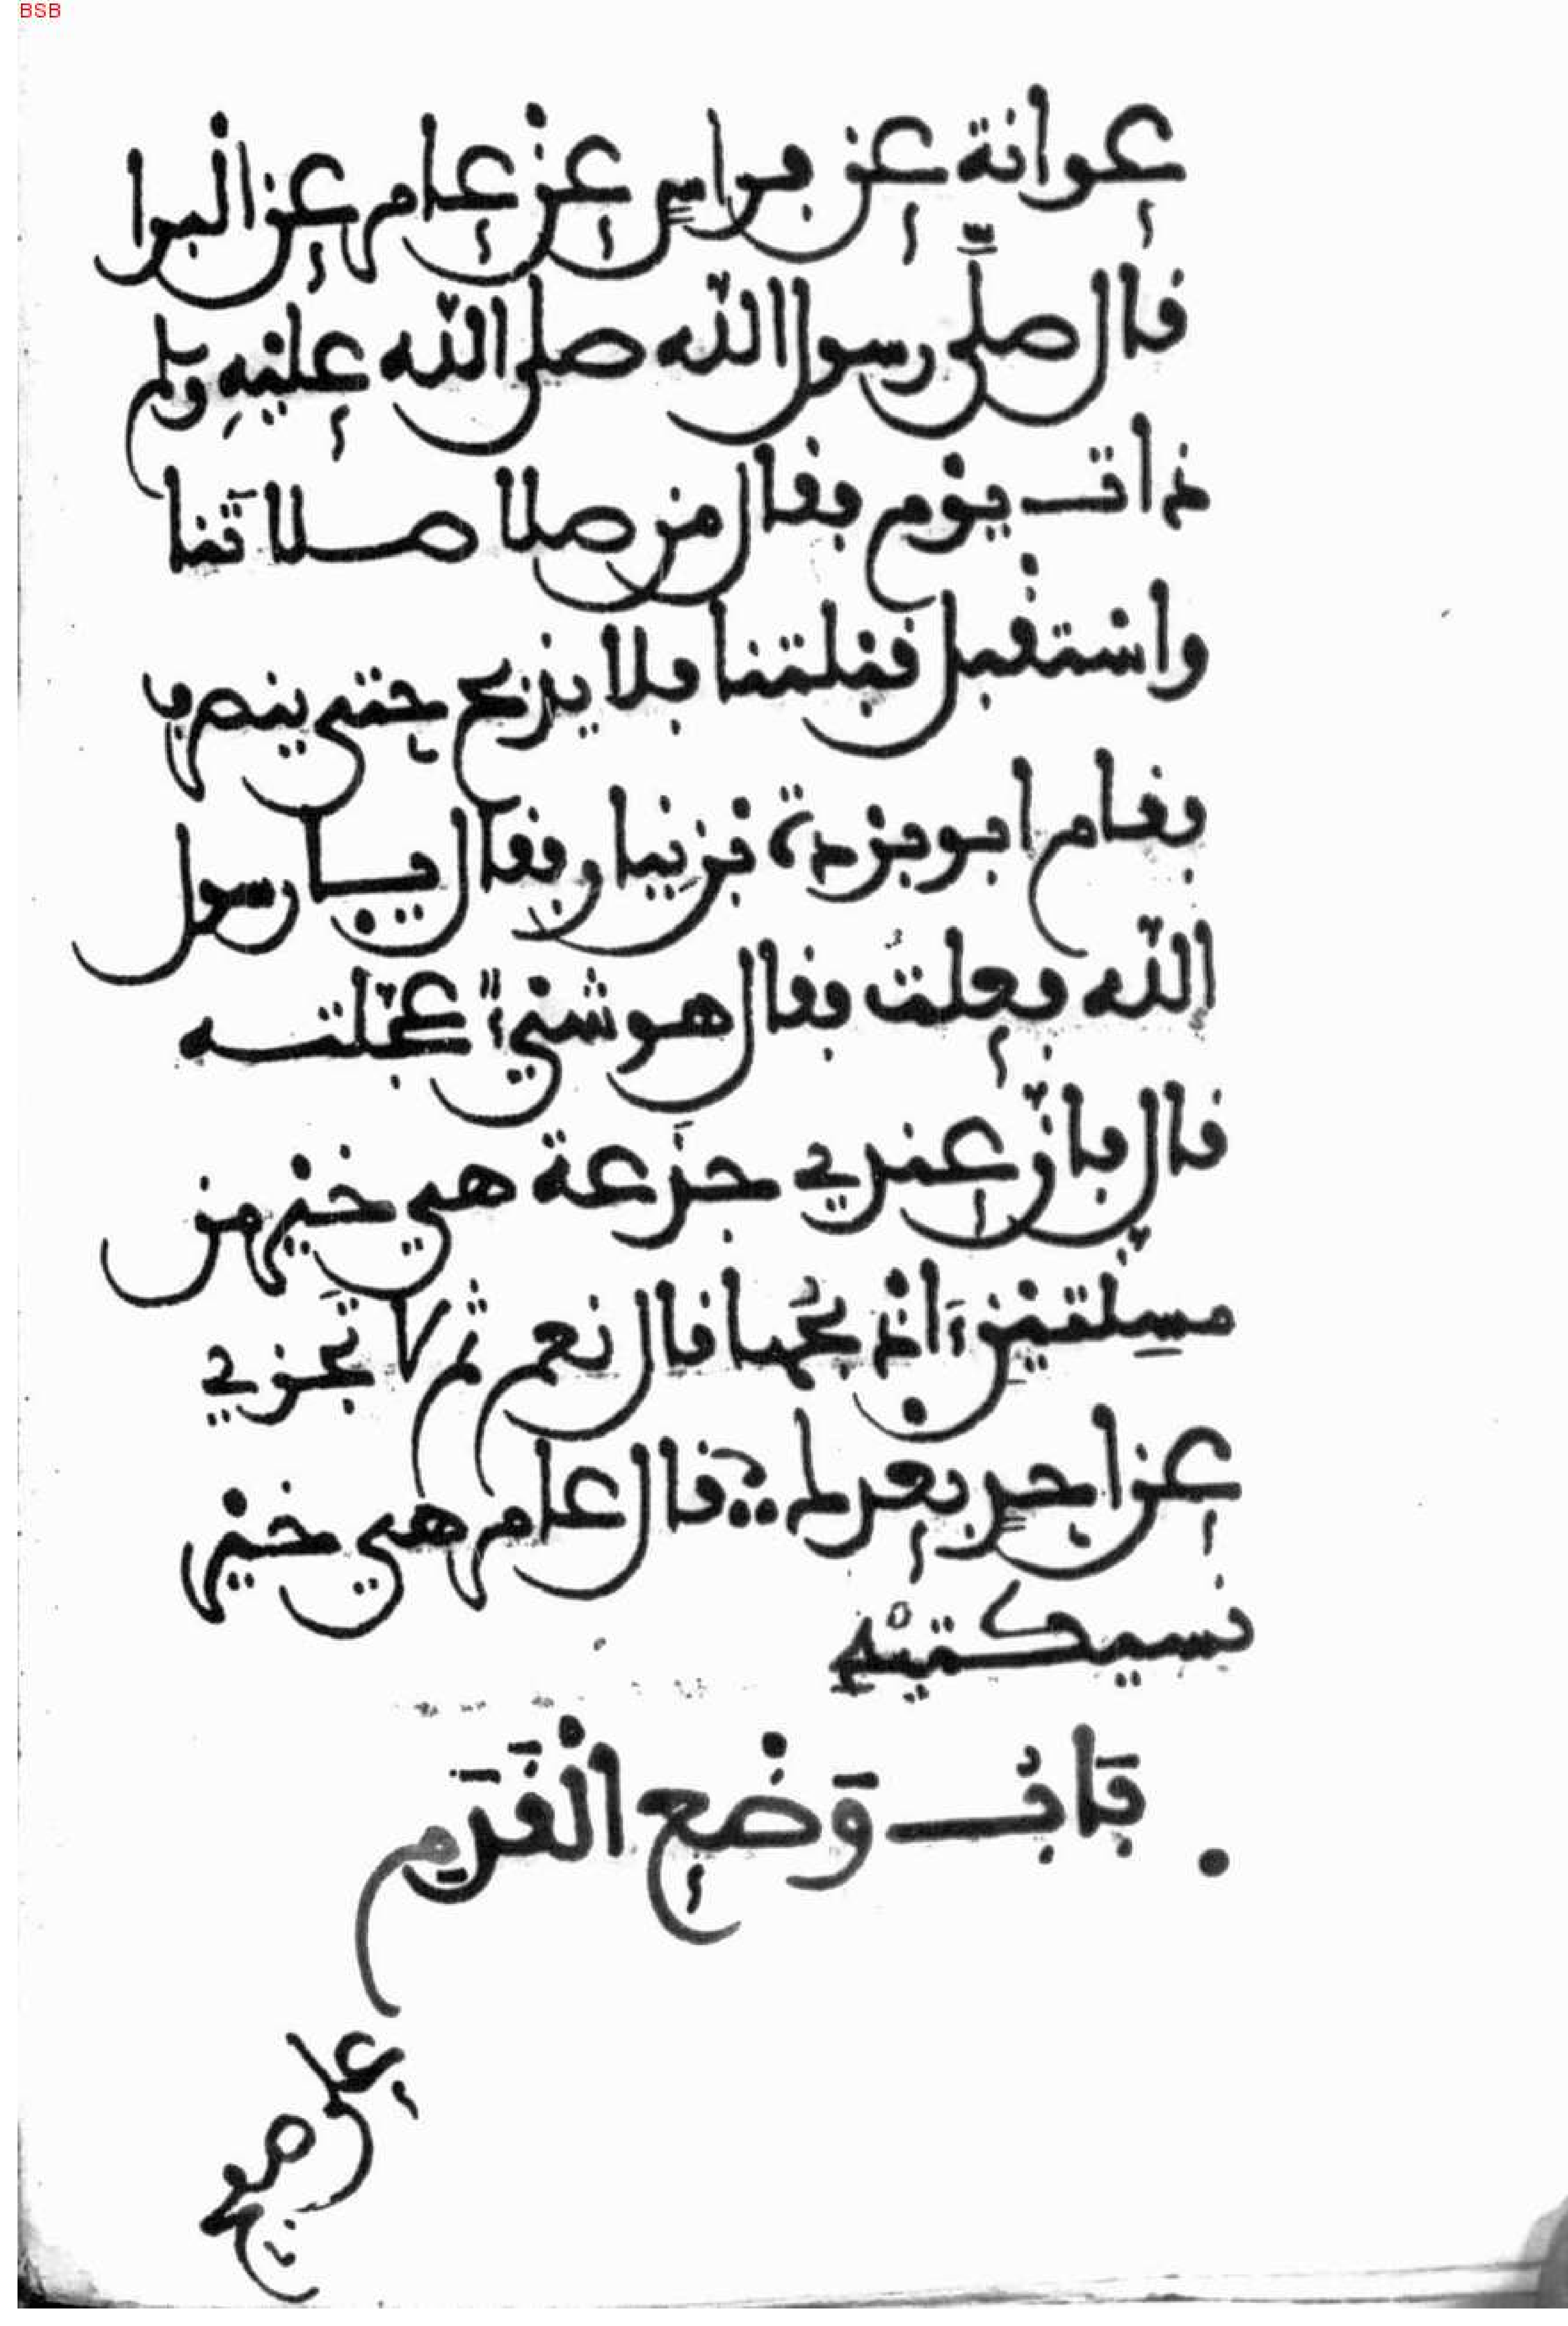 BSB
عوانة عن فراس عن عامر عن البرا
قال صلّى رسول اللّه صلى اللّه عليْهِ وسلم
ذات يوْم فقال من صلا صلاتنا
واسْتقْبل قبْلتنا فلا يذبح حتى ينصرف
فقام ابو بردة بْن نِيار فقال يا رسول
اللّه فعلتُ فقال هو شيْءٌ عجّلته
قال فانّ عندي جذَعة هي خيْر من
مسِنّتيْن ءَاذْبحُها قال نعم ثم لا تَجزي
عن احد بعدك قال عامر هي خيْر
نسيكتيْهِ
بَابُ وَضْعِ الْقَدَمِ
على صفح